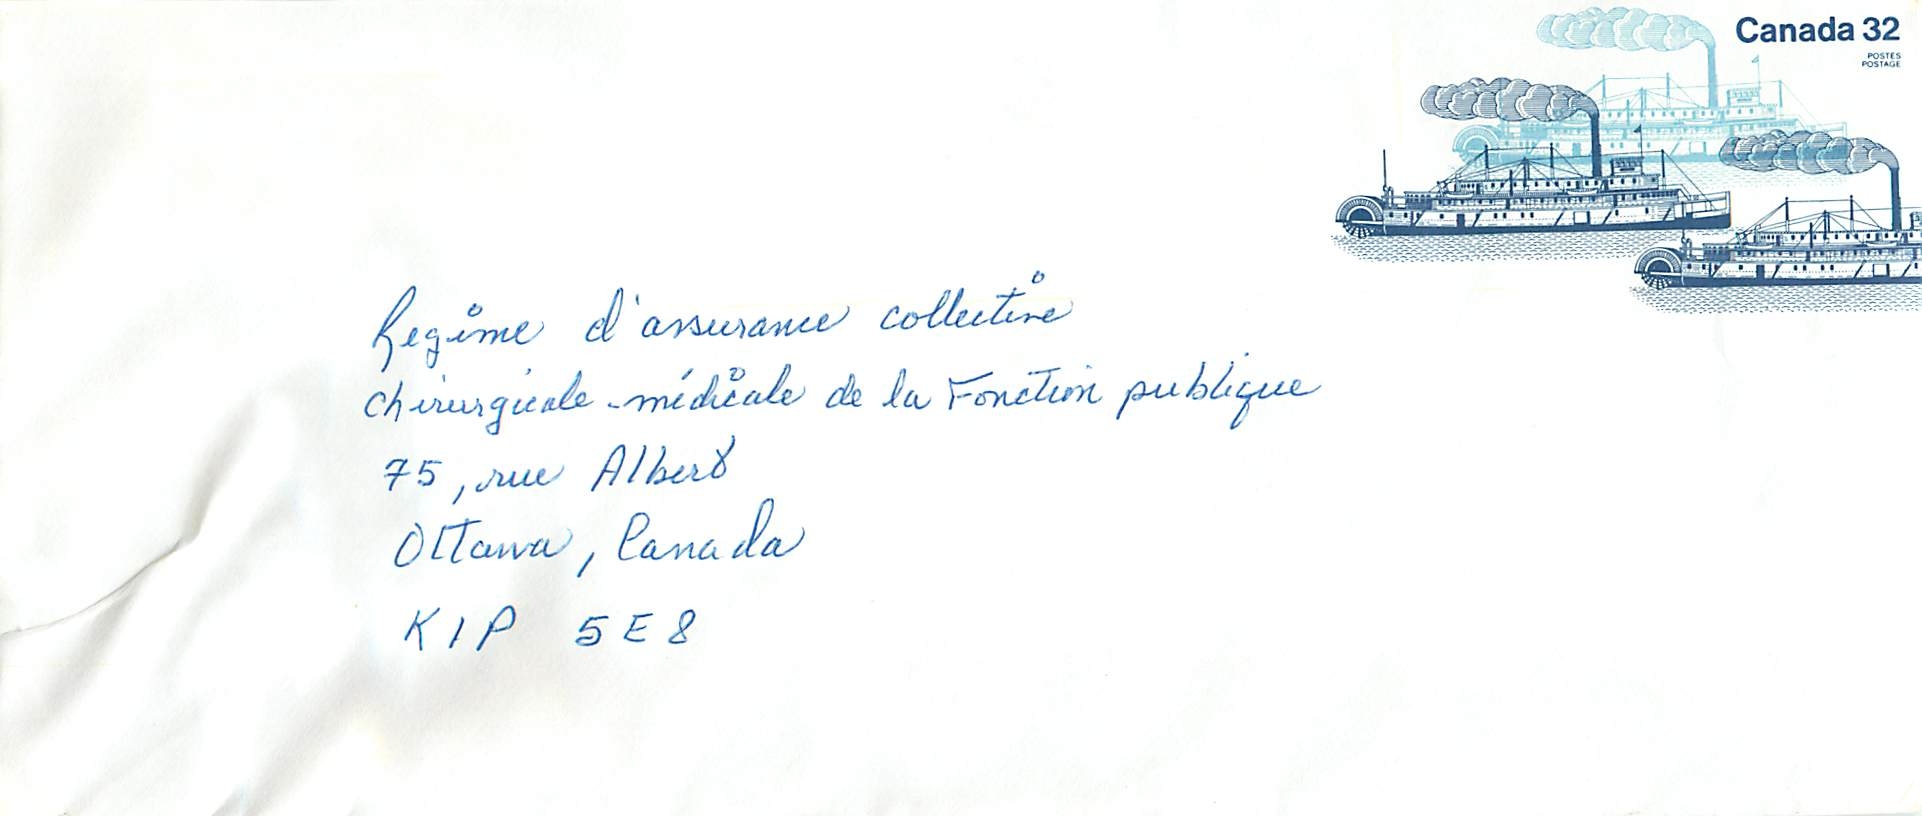 Canada 32
POSTES
POSTAGE
Regime d'assurance collective
chirurgicale-médicale de la Fonction publique
75, rue Albert
Ottawa, Canada
K1P 5E8